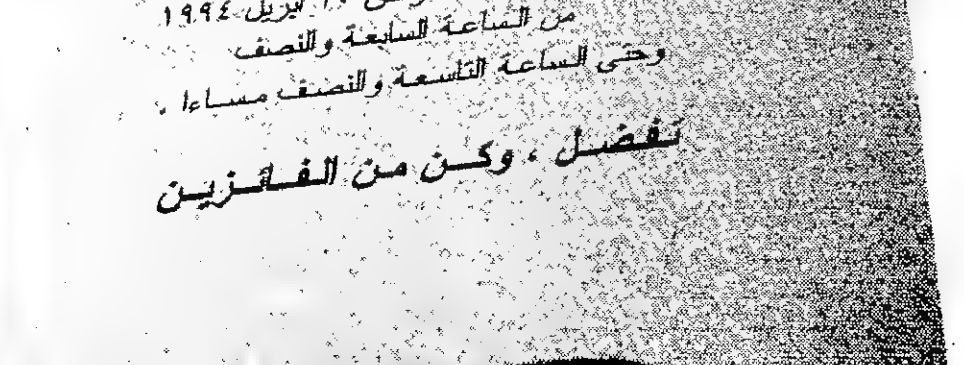 ابريل ١٩٩٤
من الساعة السابعة والنصف
وحتى الساعة التاسعة والنصف مساءا .
تفضل ، وكن من الفائزين